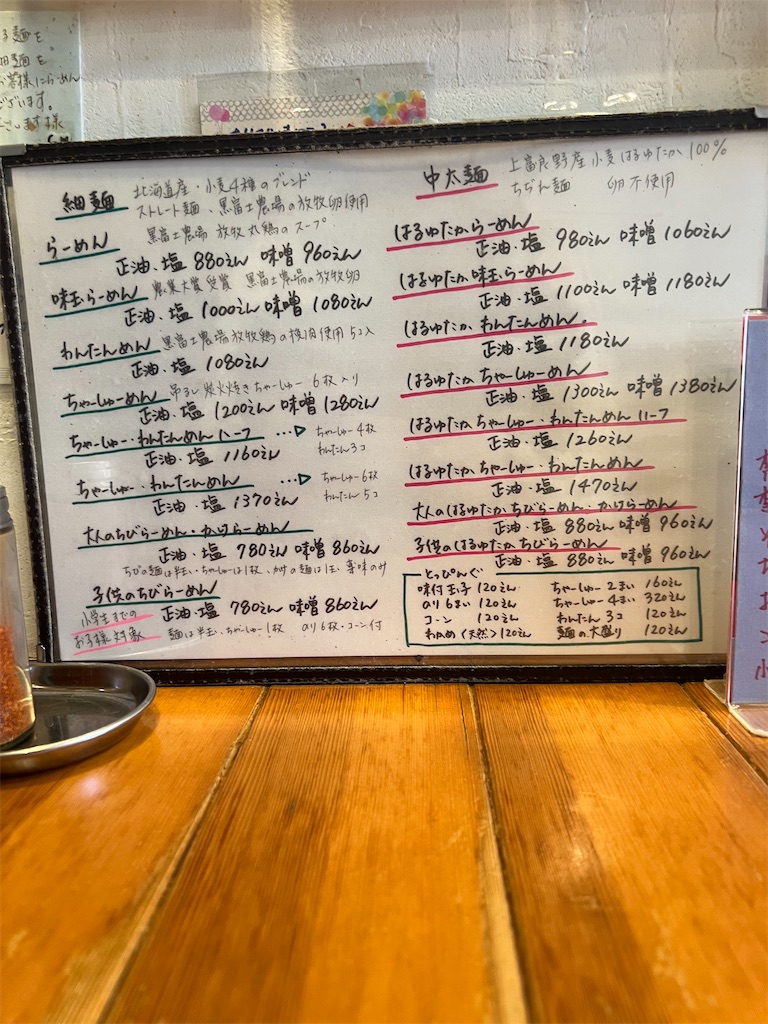 細麺 北海道産・小麦4種のブレンド
ストレート麺、黒富士農場の放牧卵使用
黒富士農場 放牧丸鶏のスープ
らーめん
正油・塩 880えん 味噌 960えん
味玉らーめん 農業大賞受賞 黒富士農場の放牧卵
正油・塩 1000えん 味噌 1080えん
わんたんめん 黒富士農場放牧鶏の挽肉使用 5コ入
正油・塩 1080えん
ちゃーしゅーめん 吊るし炭火焼きちゃーしゅー 6枚入り
正油・塩 1200えん 味噌 1280えん
ちゃーしゅー・わんたんめんハーフ ちゃーしゅー4枚
正油・塩 1160えん わんたん3コ
ちゃーしゅー・わんたんめん ちゃーしゅー6枚
正油・塩 1370えん わんたん5コ
大人のちびらーめん・かけらーめん
正油・塩 780えん 味噌 860えん
ちびの麺は半玉、ちゃーしゅーは1枚、かけの麺は1玉、薬味のみ
子供のちびらーめん
小学生までの 正油・塩 780えん 味噌 860えん
お子様対象 麺は半玉、ちゃーしゅー1枚 のり6枚・コーン付
中太麺 上富良野産小麦はるゆたか100%
ちぢれ麺 卵不使用
はるゆたからーめん
正油・塩 980えん 味噌 1060えん
はるゆたか味玉らーめん
正油・塩 1100えん 味噌 1180えん
はるゆたかわんたんめん
正油・塩 1180えん
はるゆたかちゃーしゅーめん
正油・塩 1300えん 味噌 1380えん
はるゆたかちゃーしゅー・わんたんめんハーフ
正油・塩 1260えん
はるゆたかちゃーしゅー・わんたんめん
正油・塩 1470えん
大人のはるゆたかちびらーめん・かけらーめん
正油・塩 880えん 味噌 960えん
子供のはるゆたかちびらーめん
正油・塩 880えん 味噌 960えん
とっぴんぐ
味付玉子 120えん ちゃーしゅー2まい 160えん
のり6まい 120えん ちゃーしゅー4まい 320えん
コーン 120えん わんたん3コ 120えん
わかめ(天然) 120えん 麺の大盛り 120えん